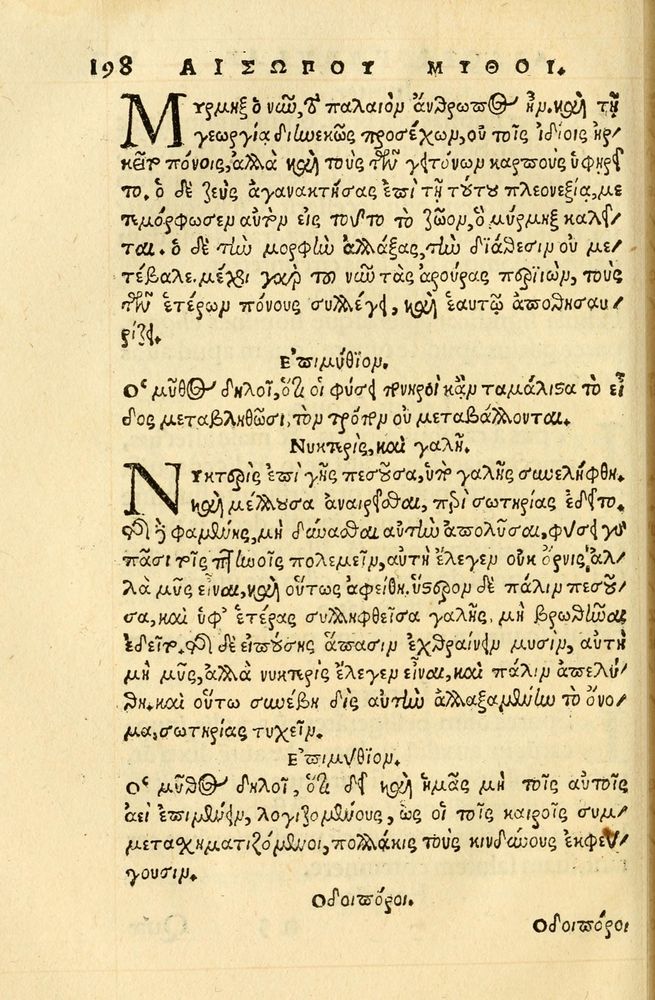 198 ΑΙΣΩΠΟΥ ΜΥΘΟΙ.
Μύρμηξ ὁ νῦν, τὸ παλαιὸν ἄνθρωπος ἦν. καὶ τῇ
γεωργίᾳ διηνεκῶς προσέχων, οὐ τοῖς ἰδίοις ἠρ/
κεῖτο πόνοις, ἀλλὰ καὶ τοὺς τῶν γειτόνων καρποὺς ὑφῃρεῖ
το. ὁ δὲ ζεὺς ἀγανακτήσας ἐπὶ τῇ τούτου πλεονεξίᾳ, με
τεμόρφωσεν αὐτὸν εἰς τοῦτο τὸ ζῶον, ὃ μύρμηξ καλεῖ/
ται. ὁ δὲ τὴν μορφὴν ἀλλάξας, τὴν διάθεσιν οὐ με/
τέβαλε. μέχρι γὰρ τοῦ νῦν τὰς ἀρούρας περιϊὼν, τοὺς
τῶν ἑτέρων πόνους συλλέγει, καὶ ἑαυτῷ ἀποθησαυ/
ρίζει.
Ἐπιμύθιον.
Ὁ μῦθος δηλοῖ, ὅτι οἱ φύσει πονηροὶ κἂν ταμάλιστα τὸ εἶ
δος μεταβληθῶσι, τὸν τρόπον οὐ μεταβάλλονται.
Νυκτερὶς, καὶ γαλῆ.
Νυκτερὶς ἐπὶ γῆς πεσοῦσα, ὑπὸ γαλῆς συνελήφθη.
καὶ μέλλουσα ἀναιρεῖσθαι, περὶ σωτηρίας ἐδεῖτο.
τῆς δὲ φαμένης, μὴ δύνασθαι αὐτὴν ἀπολῦσαι, φύσει γὰρ
πᾶσι τοῖς πτηνοῖς πολεμεῖν, αὐτὴ ἔλεγεν οὐκ ὄρνις, ἀλ/
λὰ μῦς εἶναι, καὶ οὕτως ἀφείθη. ὕστερον δὲ πάλιν πεσοῦ/
σα, καὶ ὑφ' ἑτέρας συλληφθεῖσα γαλῆς, μὴ βρωθῆναι
ἐδεῖτο. τῆς δὲ εἰπούσης ἅπασιν ἐχθραίνειν μυσὶν, αὐτὴ
μὴ μῦς, ἀλλὰ νυκτερὶς ἔλεγεν εἶναι, καὶ πάλιν ἀπελύ/
θη. καὶ οὕτω συνέβη δὶς αὐτὴν ἀλλαξαμένην τὸ ὄνο/
μα, σωτηρίας τυχεῖν.
Ἐπιμύθιον.
Ὁ μῦθος δηλοῖ, ὅτι δεῖ καὶ ἡμᾶς μὴ τοῖς αὐτοῖς
ἀεὶ ἐπιμένειν, λογιζομένους, ὡς οἱ τοῖς καιροῖς συμ/
μετασχηματιζόμενοι, πολλάκις τοὺς κινδύνους ἐκφεύ/
γουσιν.
Ὁδοιπόροι.
Ὁδοιπόροι